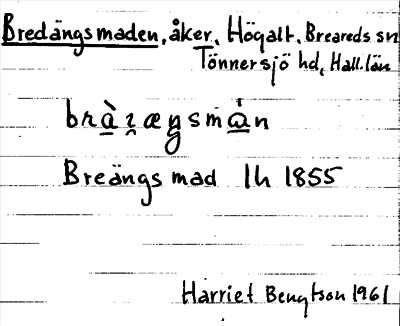 Bredängsmaden, åker, Högalt. Breareds sn
Tönnersjö hd, Hall. län
Breängs mad lh 1855
Harriet Bengtson 1961